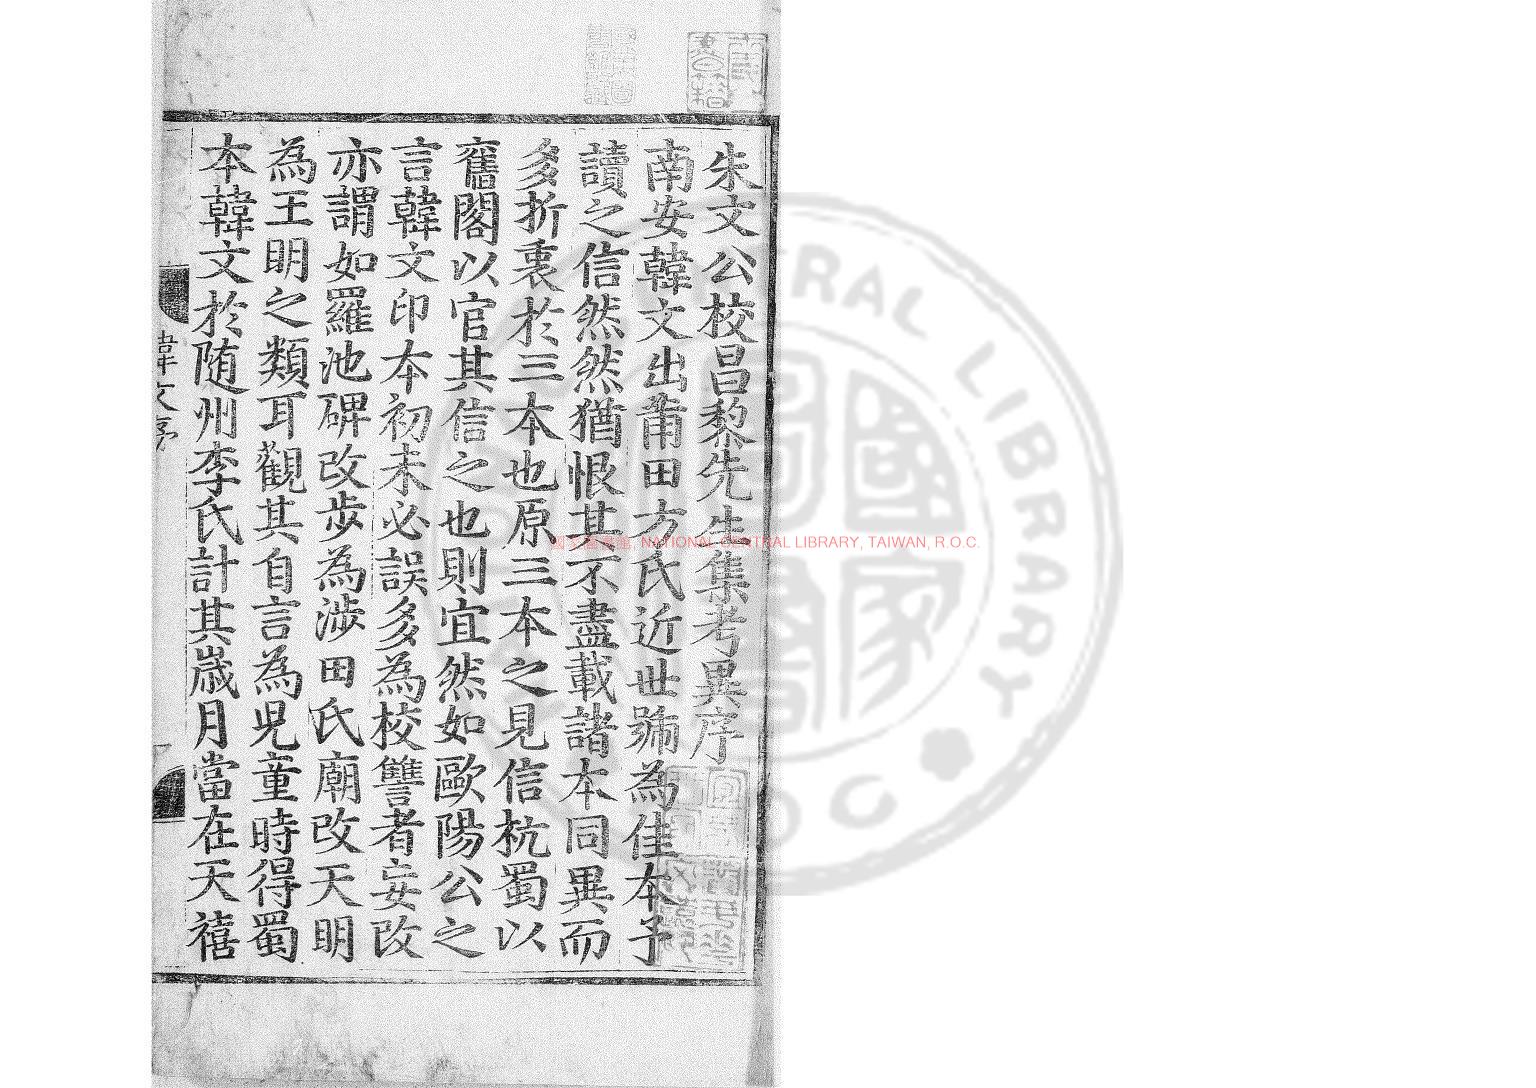 朱文公校昌黎先生集考異序
南安韓文出莆田方氏近世號為佳本予
讀之信然然猶恨其不盡載諸本同異而
多折衷於三本也原三本之見信杭蜀以
舊閣以官其信之也則宜然如歐陽公之
言韓文印本初未必誤多為校讐者妄改
亦謂如羅池碑改步為涉田氏廟改天明
為王明之類耳觀其自言為児童時得蜀
本韓文於随州李氏計其歲月當在天禧
韓文序
國家圖書館, NATIONAL CENTRAL LIBRARY, TAIWAN, R.O.C.